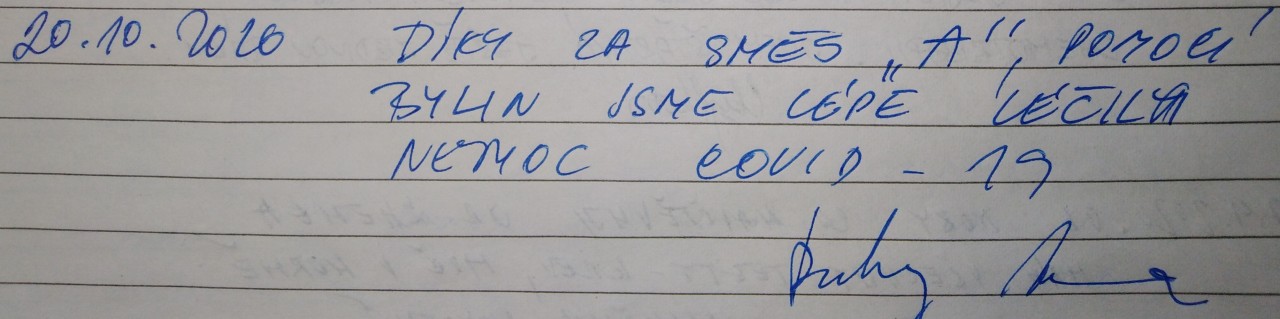 20.10.2020 DÍKY ZA SMĚS „A“, POMOCÍ
BYLIN JSME LÉPE LÉČILI
NEMOC COVID - 19